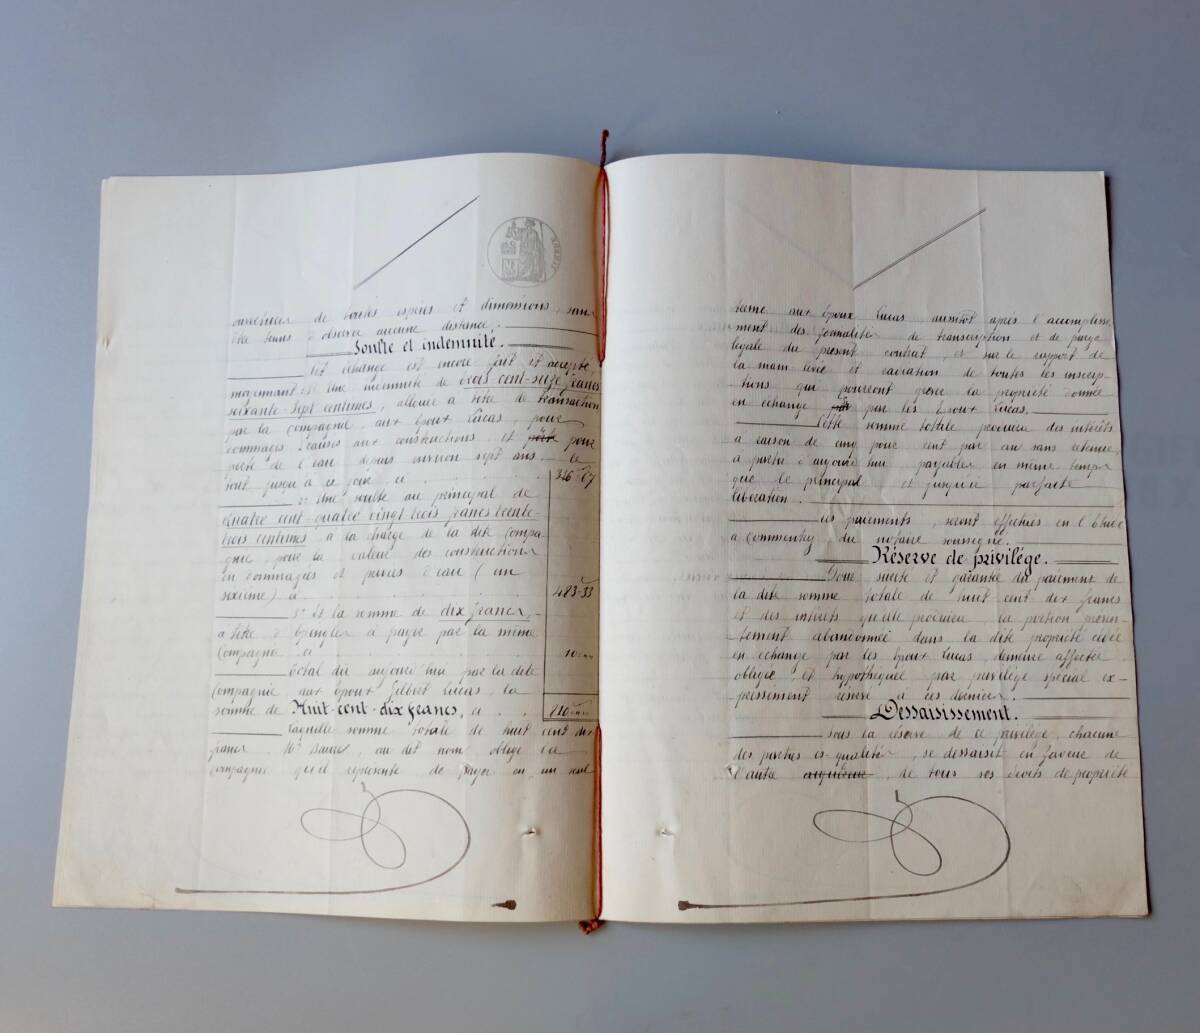 ouvertures de toutes espèces et dimensions, sans
être tenus d'observer aucune distance.
Soulte et indemnité.
Cet échange est encore fait et accepté,
moyennant 1° Une indemnité de trois cent seize francs
soixante sept centimes, allouée à titre de transaction
par la Compagnie aux époux Lucas, pour
dommages causés aux constructions et pour
perte de l'eau depuis environ sept ans, le
tout jusqu'à ce jour, ci
316-67
2° Une soulte au principal de
quatre cent quatre vingt trois francs trente-
trois centimes à la charge de la dite Compa-
gnie, pour la valeur des constructions
en dommages et privés d'eau (un
sixième) ci
483-33
3° et la somme de dix francs,
à titre d'épingles à payer par la même
Compagnie, ci
10
Total dû aujourd'hui par la dite
Compagnie aux époux Gilbert Lucas, la
somme de Huit-cent-dix francs, ci
810
Laquelle somme totale de huit cent dix
francs Mr au dit nom, oblige la
Compagnie qu'il représente de payer en un seul
terme aux époux Lucas aussitôt après l'accomplisse-
ment des formalités de transcription et de purge
légale du présent contrat, et sur le rapport de
la main levée et radiation de toutes les inscrip-
tions qui pourront grever la propriété donnée
en échange par les époux Lucas.
Cette somme totale produira des intérêts
à raison de cinq pour cent par an sans retenue
à partir d'aujourd'hui payables en même temps
que le principal et jusqu'à parfaite
libération.
Les paiements, seront effectués en l'étude
à Commentry du notaire soussigné.
Réserve de privilège.
Pour sûreté et garantie du paiement de
la dite somme totale de huit cent dix francs
et des intérêts qu'elle produira, la portion présen-
tement abandonnée dans la dite propriété cédée
en échange par les époux Lucas, demeure affectée,
obligée et hypothéquée par privilège spécial ex-
pressément réservé à ces derniers.
Dessaisissement.
Sous la réserve de ce privilège, chacune
des parties ès-qualités, se dessaisit en faveur de
l'autre acquéreur, de tous ses droits de propriété